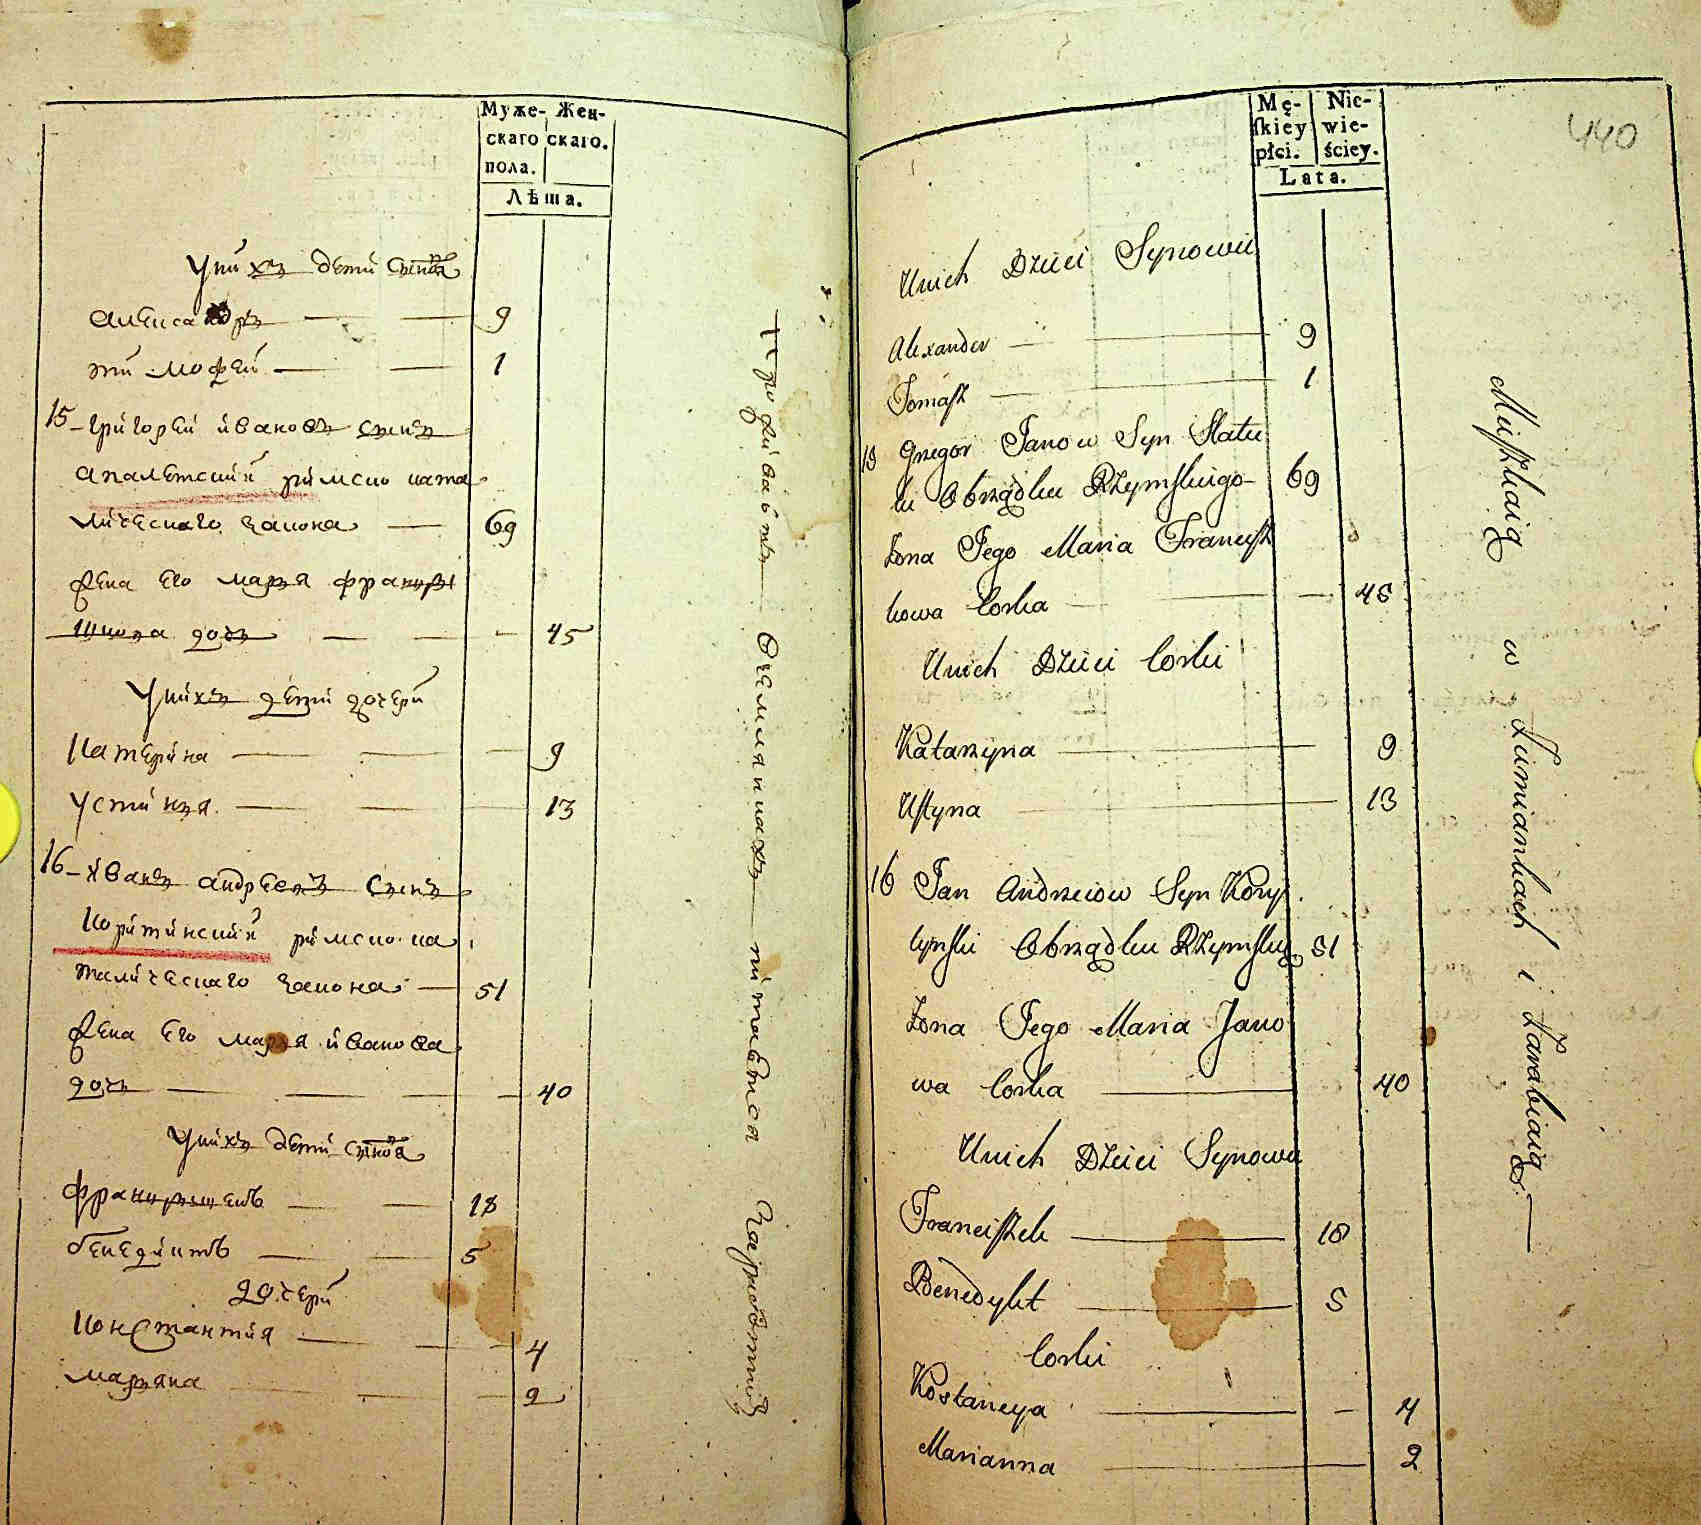 Муже- Жен-
скаго скаго.
пола.
Лѣта.
Унихъ дети сыновя
Александръ — — 9
тимофей — — 1
15 - григорей ивановъ сынъ
римско ката
лическаго закона — 69
жена его марья францы
шкова дочъ — — - 45
Унихъ дети дочери
катерина — — - 9
устинья — — - 13
16 - иванъ андреевъ сынъ
коритинский римско ка
толическаго закона — 51
жена его марья иванова
дочъ — — — - 40
Унихъ дети сыновя
францышекъ — — 18
бенедиктъ — — 5
дочери
констанция — — - 4
марьяна — — - 2
вземлянкахъ питается
440
Mę- Nie-
skiey wie-
płci. ściey.
Lata.
Unich Dzieci Synowie
Alexander — — 9
Tomasz — 1
15 Gregor Janow Syn
ki Obrządku Rzymskiego - 69
Zona Jego Maria Francisz
kowa Corka — — - 45
Unich Dzieci Corki
Katarzyna — 9
Ustyna — 13
16 Jan Andrzeiow Syn Kory
tynski Obrządku Rzymskieg 51
Zona Jego Maria Jano
wa Corka — 40
Unich Dzieci Synowie
Franciszek — 18
Benedykt — 5
Corki
Kostancya — - 4
Marianna — 2
Mieszkaią w Ziemiankach i Zarabiaią —